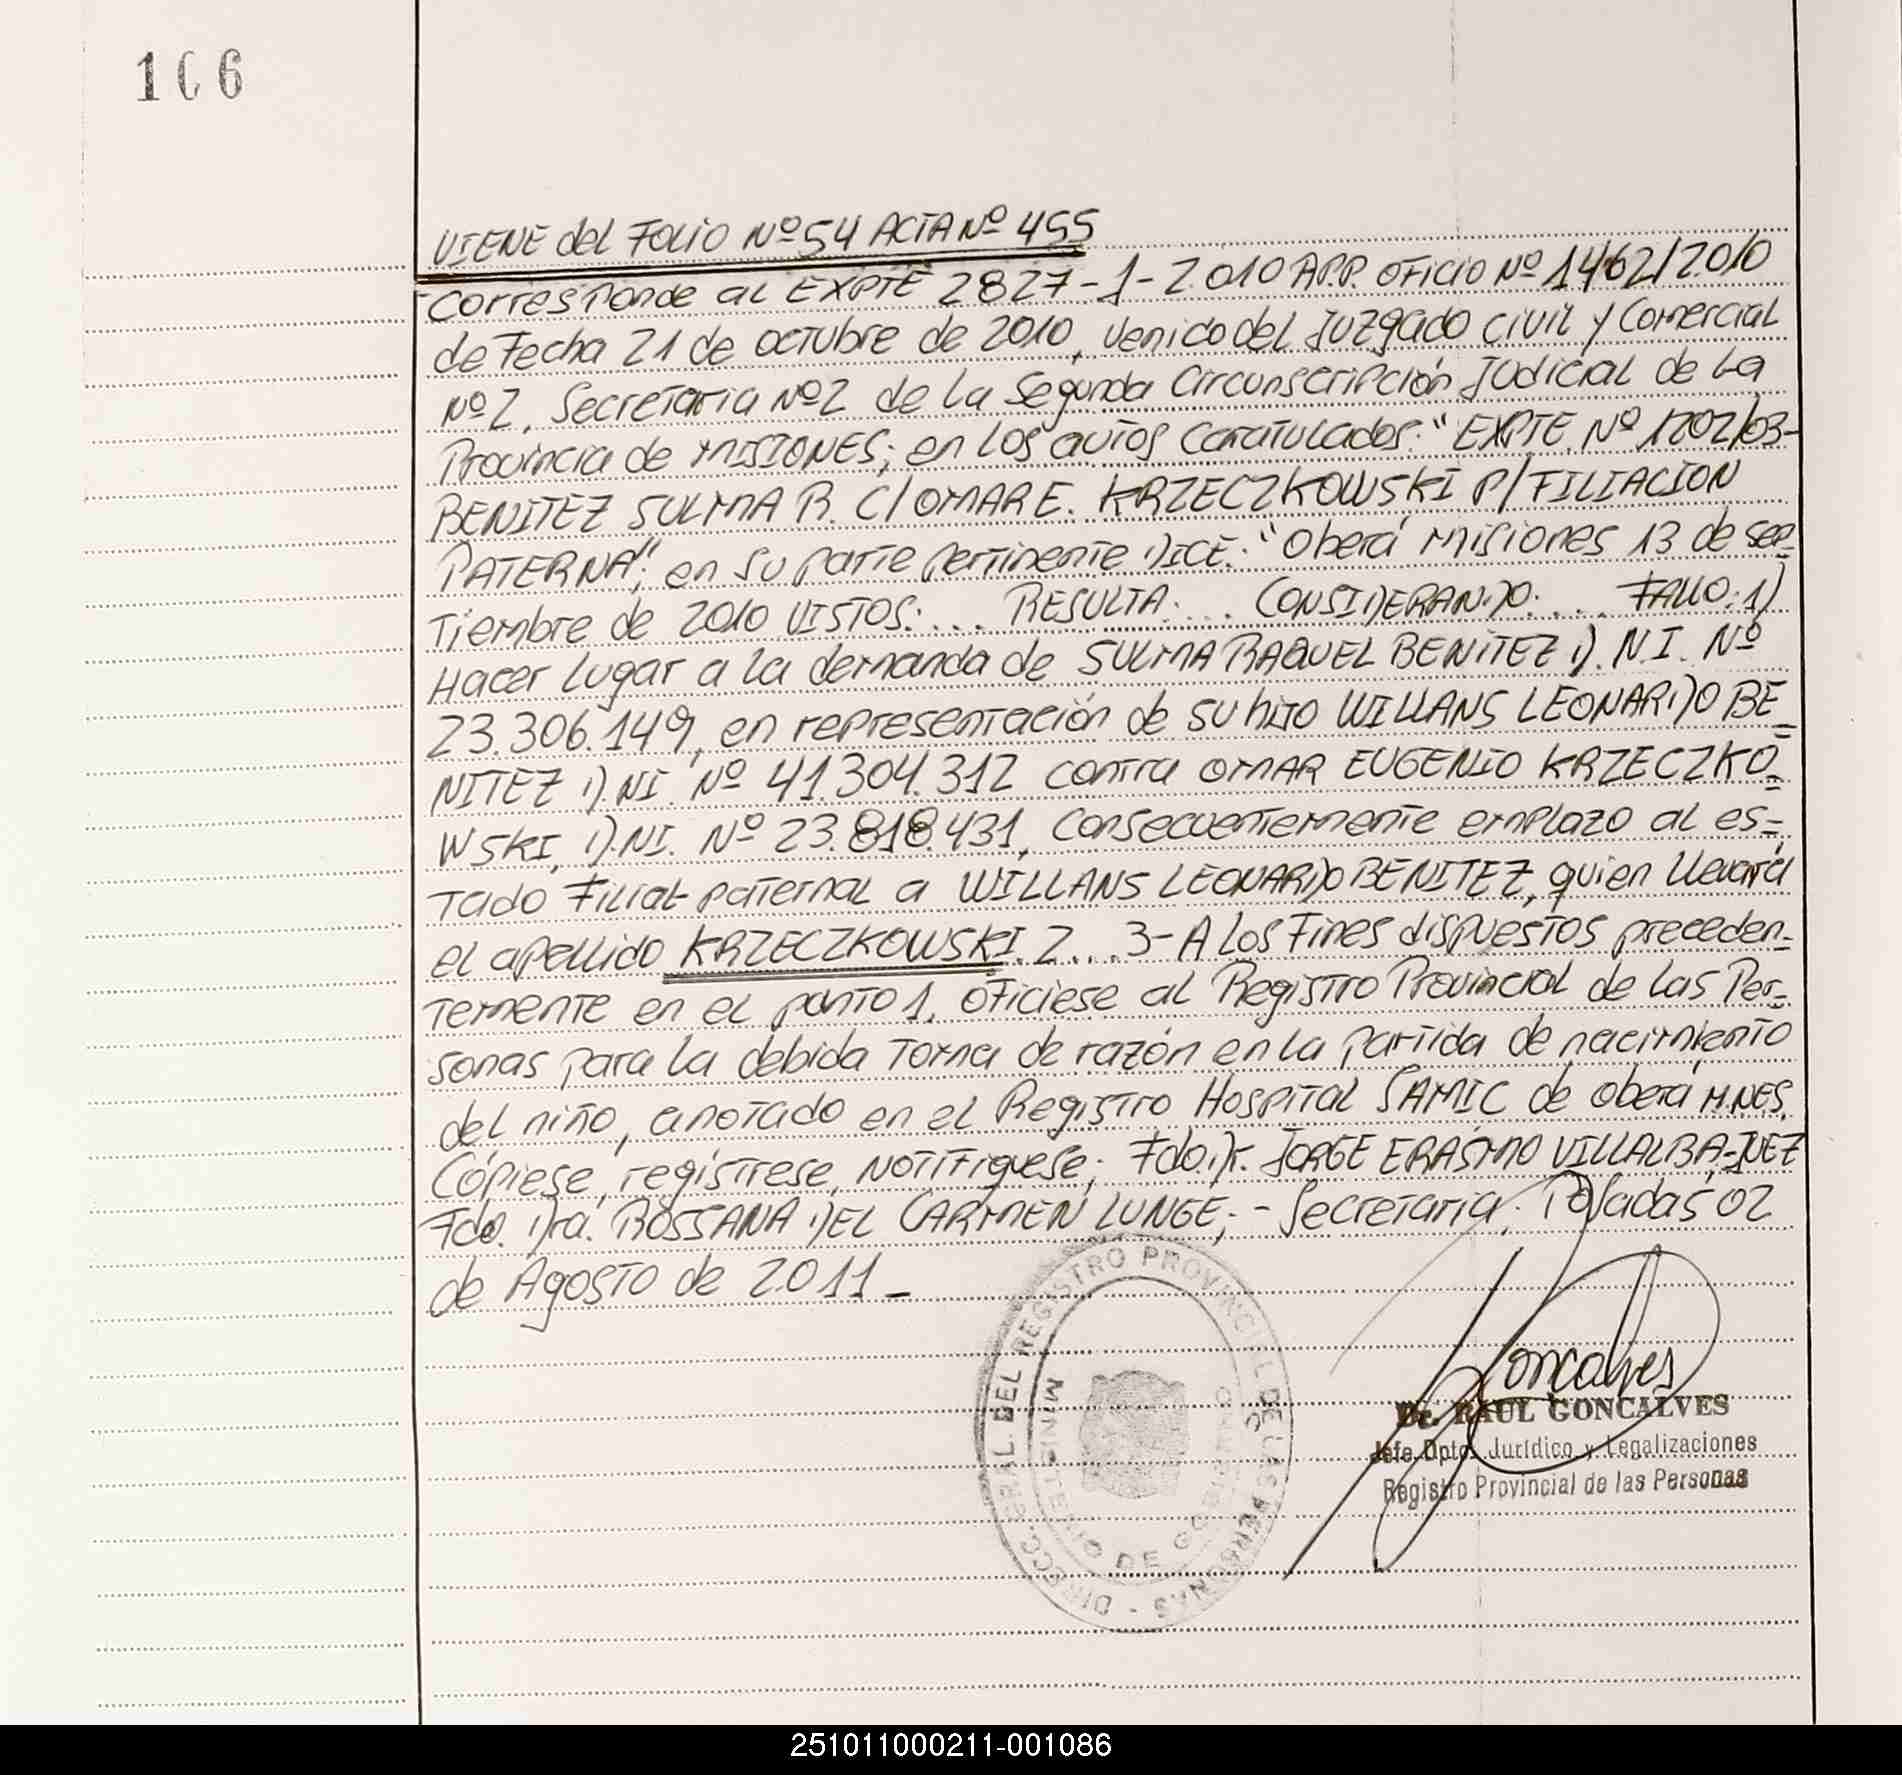 106
VIENE del FOLIO Nº 54 ACTA Nº 455
Corresponde al EXPTE 2827-1-2010 A.P.P. OFICIO Nº 1462/2010
de Fecha 21 de octubre de 2010, venido del Juzgado Civil y Comercial
Nº 2, Secretaria Nº 2 de la Segunda Circunscripción Judicial de La
Provincia de MISIONES; en los autos caratulados: "EXPTE. Nº 1202/03-
BENITEZ SULMA R. C/ OMAR E. KRZECZKOWSKI P/ FILIACION
PATERNA"; en su parte pertinente DICE: "Oberá Misiones 13 de sep-
tiembre de 2010 VISTOS:... RESULTA:... CONSIDERANDO:.... FALLO: 1)
Hacer lugar a la demanda de SULMA RAQUEL BENITEZ D.N.I. Nº
23.306.149, en representación de su hijo WILLANS LEONARDO BE-
NITEZ D.NI. Nº 41.304.312 contra OMAR EUGENIO KRZECZKO-
WSKI, D.NI. Nº 23.818.431, consecuentemente emplazo al es-
tado Filial-paternal a WILLANS LEONARDO BENITEZ, quien llevará
el apellido KRZECZKOWSKI. 2...3- A los Fines dispuestos preceden-
temente en el punto 1, ofíciese al Registro Provincial de las Per-
sonas para la debida toma de razón en la partida de nacimiento
del niño, anotado en el Registro Hospital SAMIC de oberá M.NES.
Cópiese, regístrese, Notifíquese; Fdo. Dr. JORGE ERASMO VILLALBA-JUEZ
Fdo. Dra. ROSSANA DEL CARMEN LUNGE; - Secretaria. Posadas 02
de Agosto de 2011_
DIRECC. GRAL. DEL REGISTRO PROVINCIAL DE LAS PERSONAS -
MINISTERIO DE GOBIERNO
Goncalves
Dr. RAUL GONCALVES
Jefe Dpto. Jurídico y Legalizaciones
Registro Provincial de las Personas
251011000211-001086